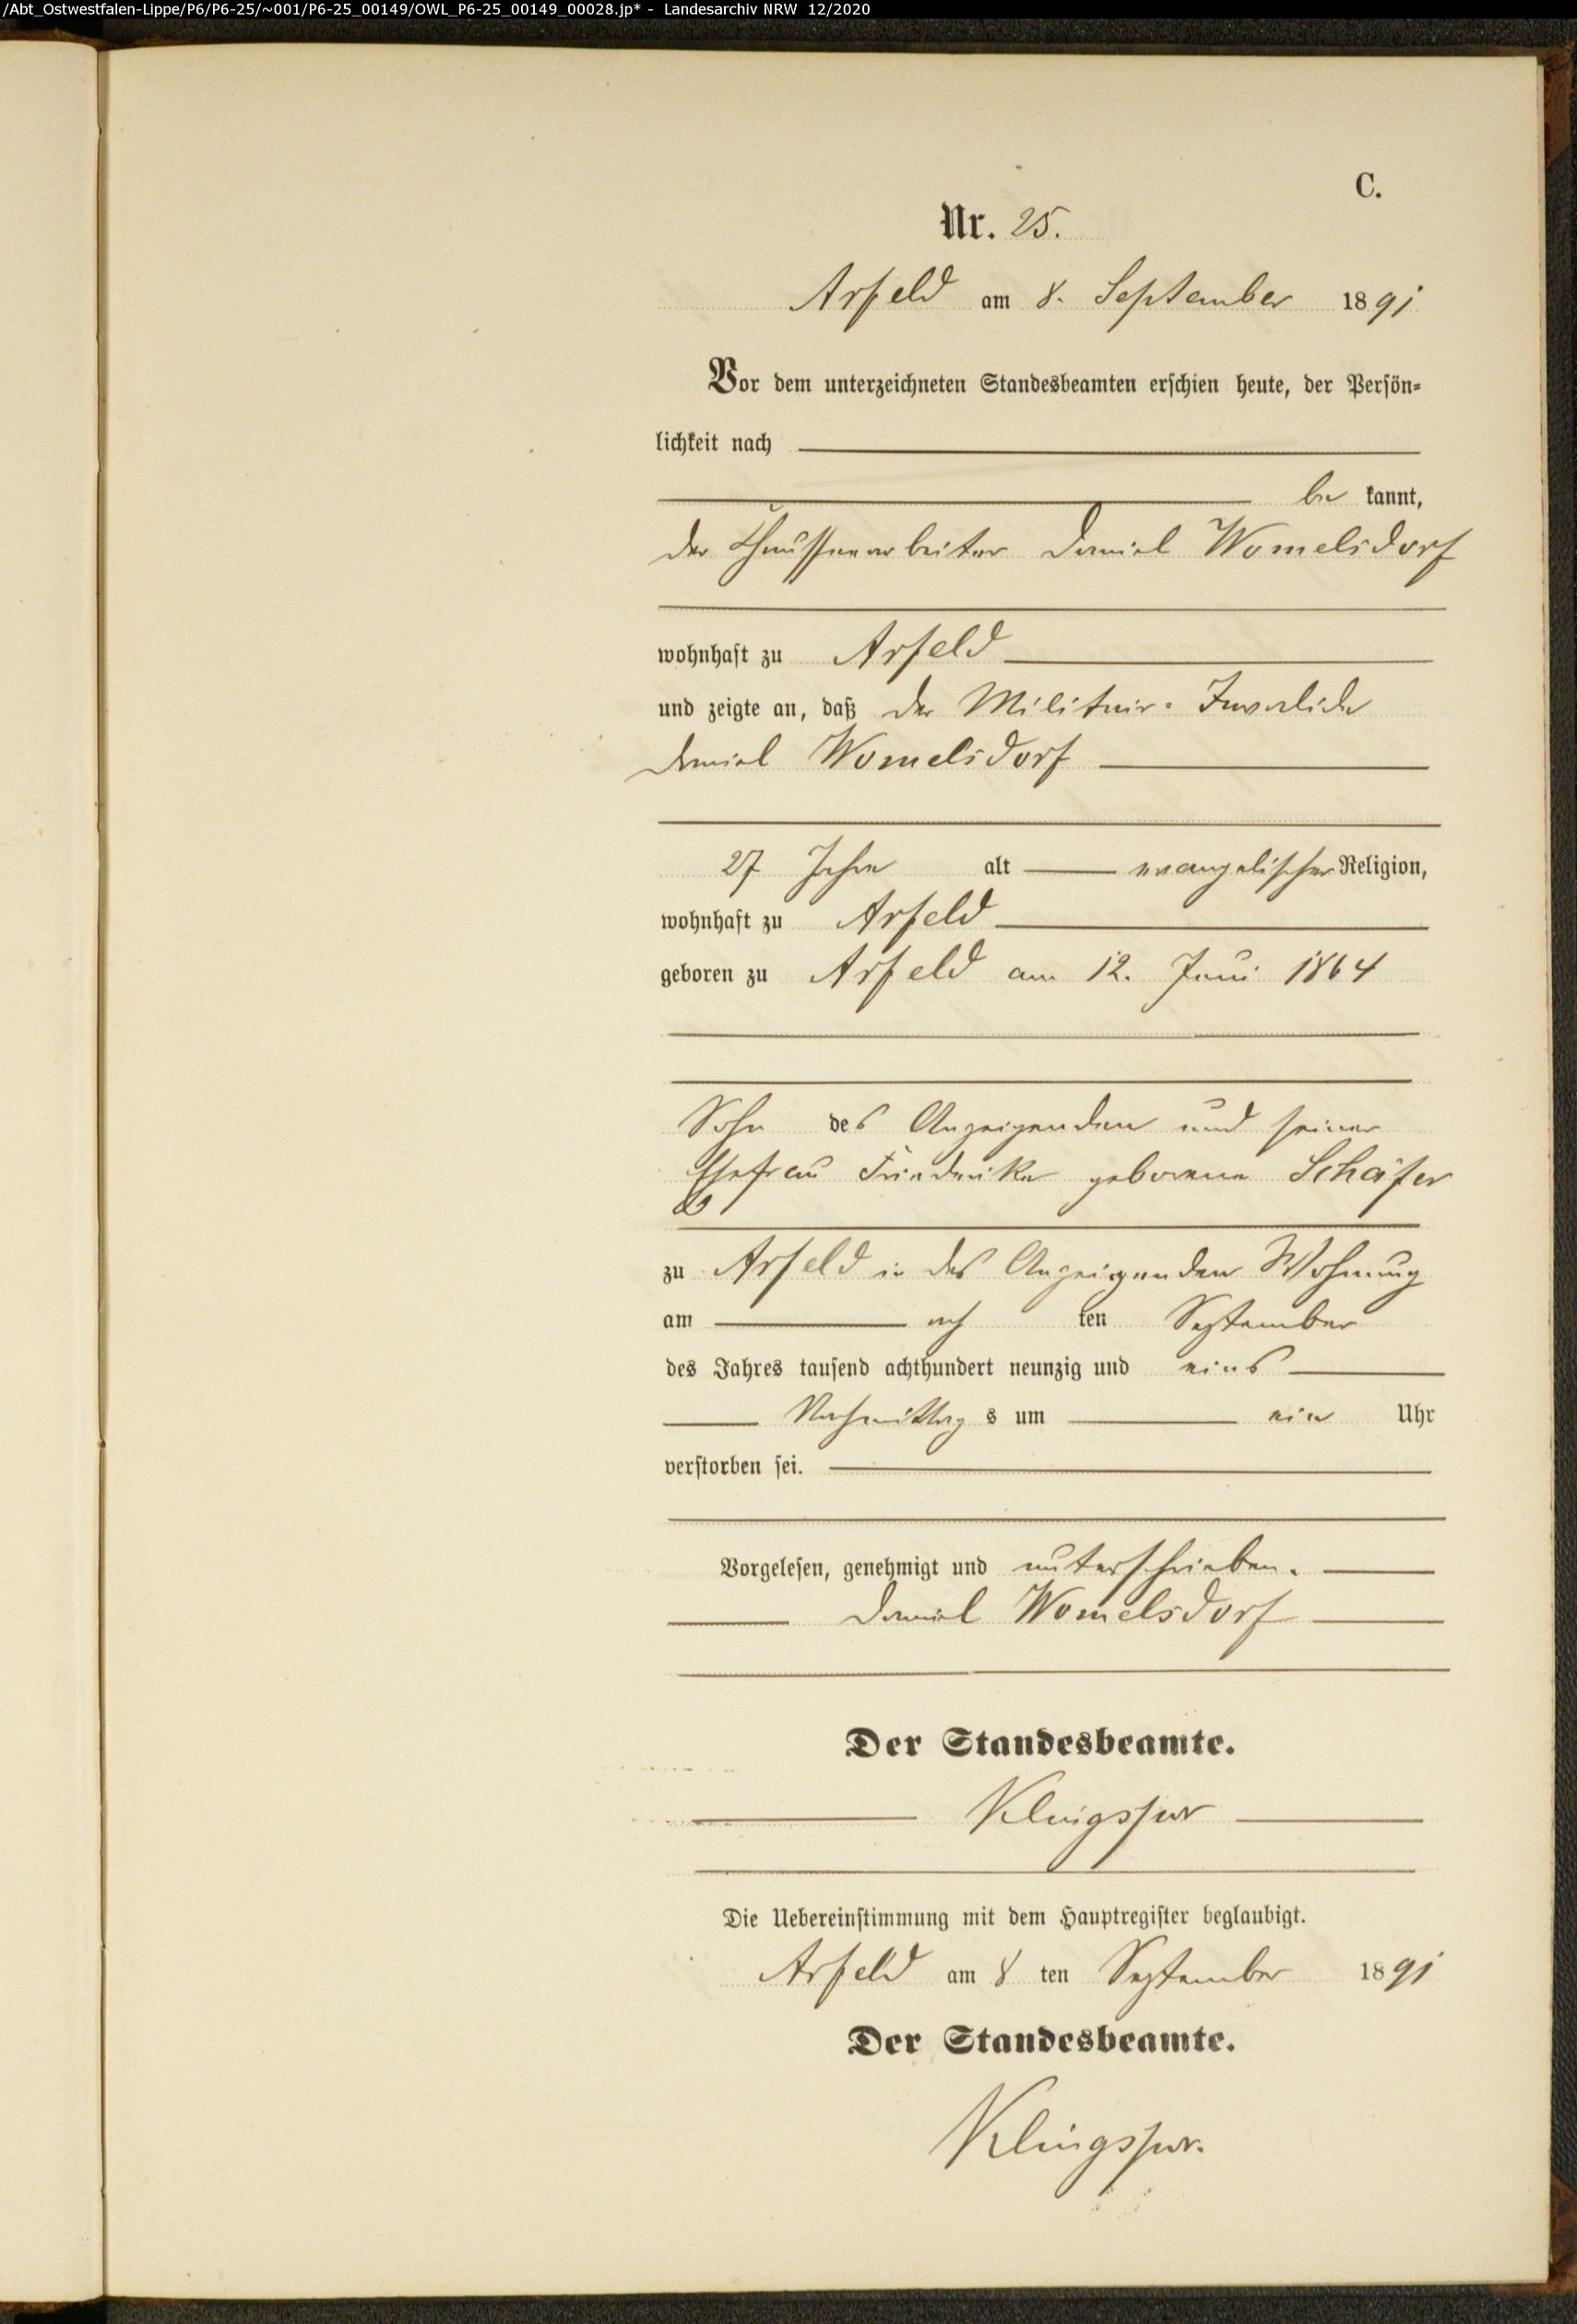 /Abt_Ostwestfalen-Lippe/P6/P6-25/~001/P6-25_00149/OWL_P6-25_00149_00028.jp* - Landesarchiv NRW 12/2020
C.
Nr. 25.
Arfeld am 8. September 1891
Vor dem unterzeichneten Standesbeamten erschien heute, der Persön-
lichkeit nach
be kannt,
der Chausseearbeiter Daniel Womelsdorf
wohnhaft zu Arfeld
und zeigte an, daß der Militair-Invalide
Daniel Womelsdorf
27 Jahre alt evangelischer Religion,
wohnhaft zu Arfeld
geboren zu Arfeld am 12. Juni 1864
Sohn des Anzeigenden und seiner
Ehefrau Friederike geborene Schäfer
zu Arfeld in des Anzeigenden Wohnung
am ach ten September
des Jahres tausend achthundert neunzig und eins
Nachmittag s um ein Uhr
verstorben sei.
Vorgelesen, genehmigt und unterschrieben.
Daniel Womelsdorf
Der Standesbeamte.
Klingspor
Die Uebereinstimmung mit dem Hauptregister beglaubigt.
Arfeld am 8 ten September 1891
Der Standesbeamte.
Klingspor.